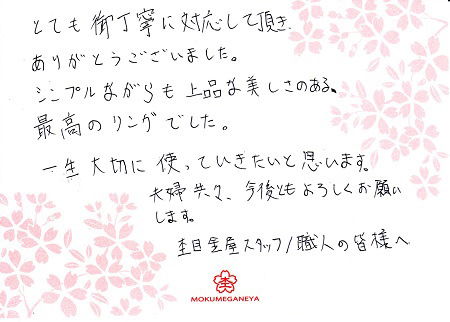 とても御丁寧に対応して頂き
ありがとうございました。
シンプルながらも上品な美しさのある、
最高のリングでした。
一生大切に使っていきたいと思います。
夫婦共々、今後ともよろしくお願い
します。
杢目金屋スタッフ/職人の皆様へ
杢
MOKUMEGANEYA